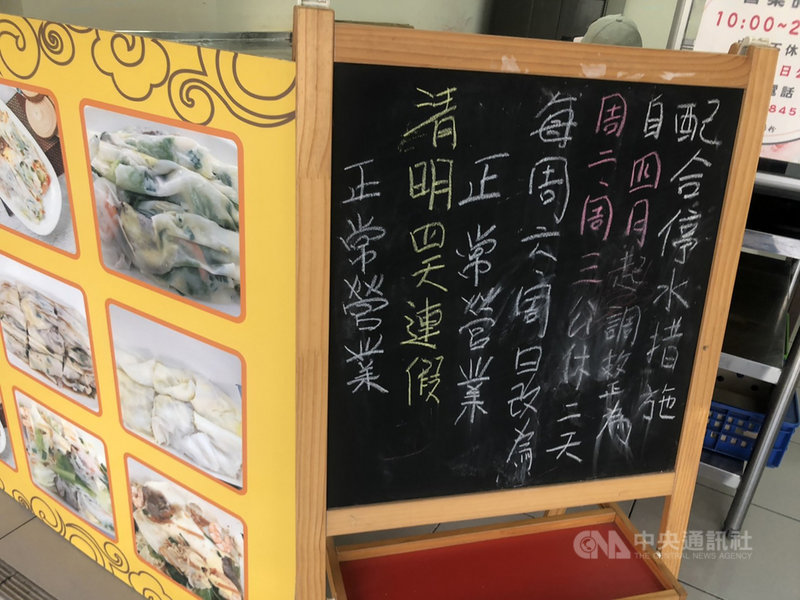 配合停水措施
自四月起調整為
周二、周三公休二天
每周六、周日改為
正常營業
清明四天連假
正常營業
10:00~2
休
日公
電話
845
中央通訊社
THE CENTRAL NEWS AGENCY